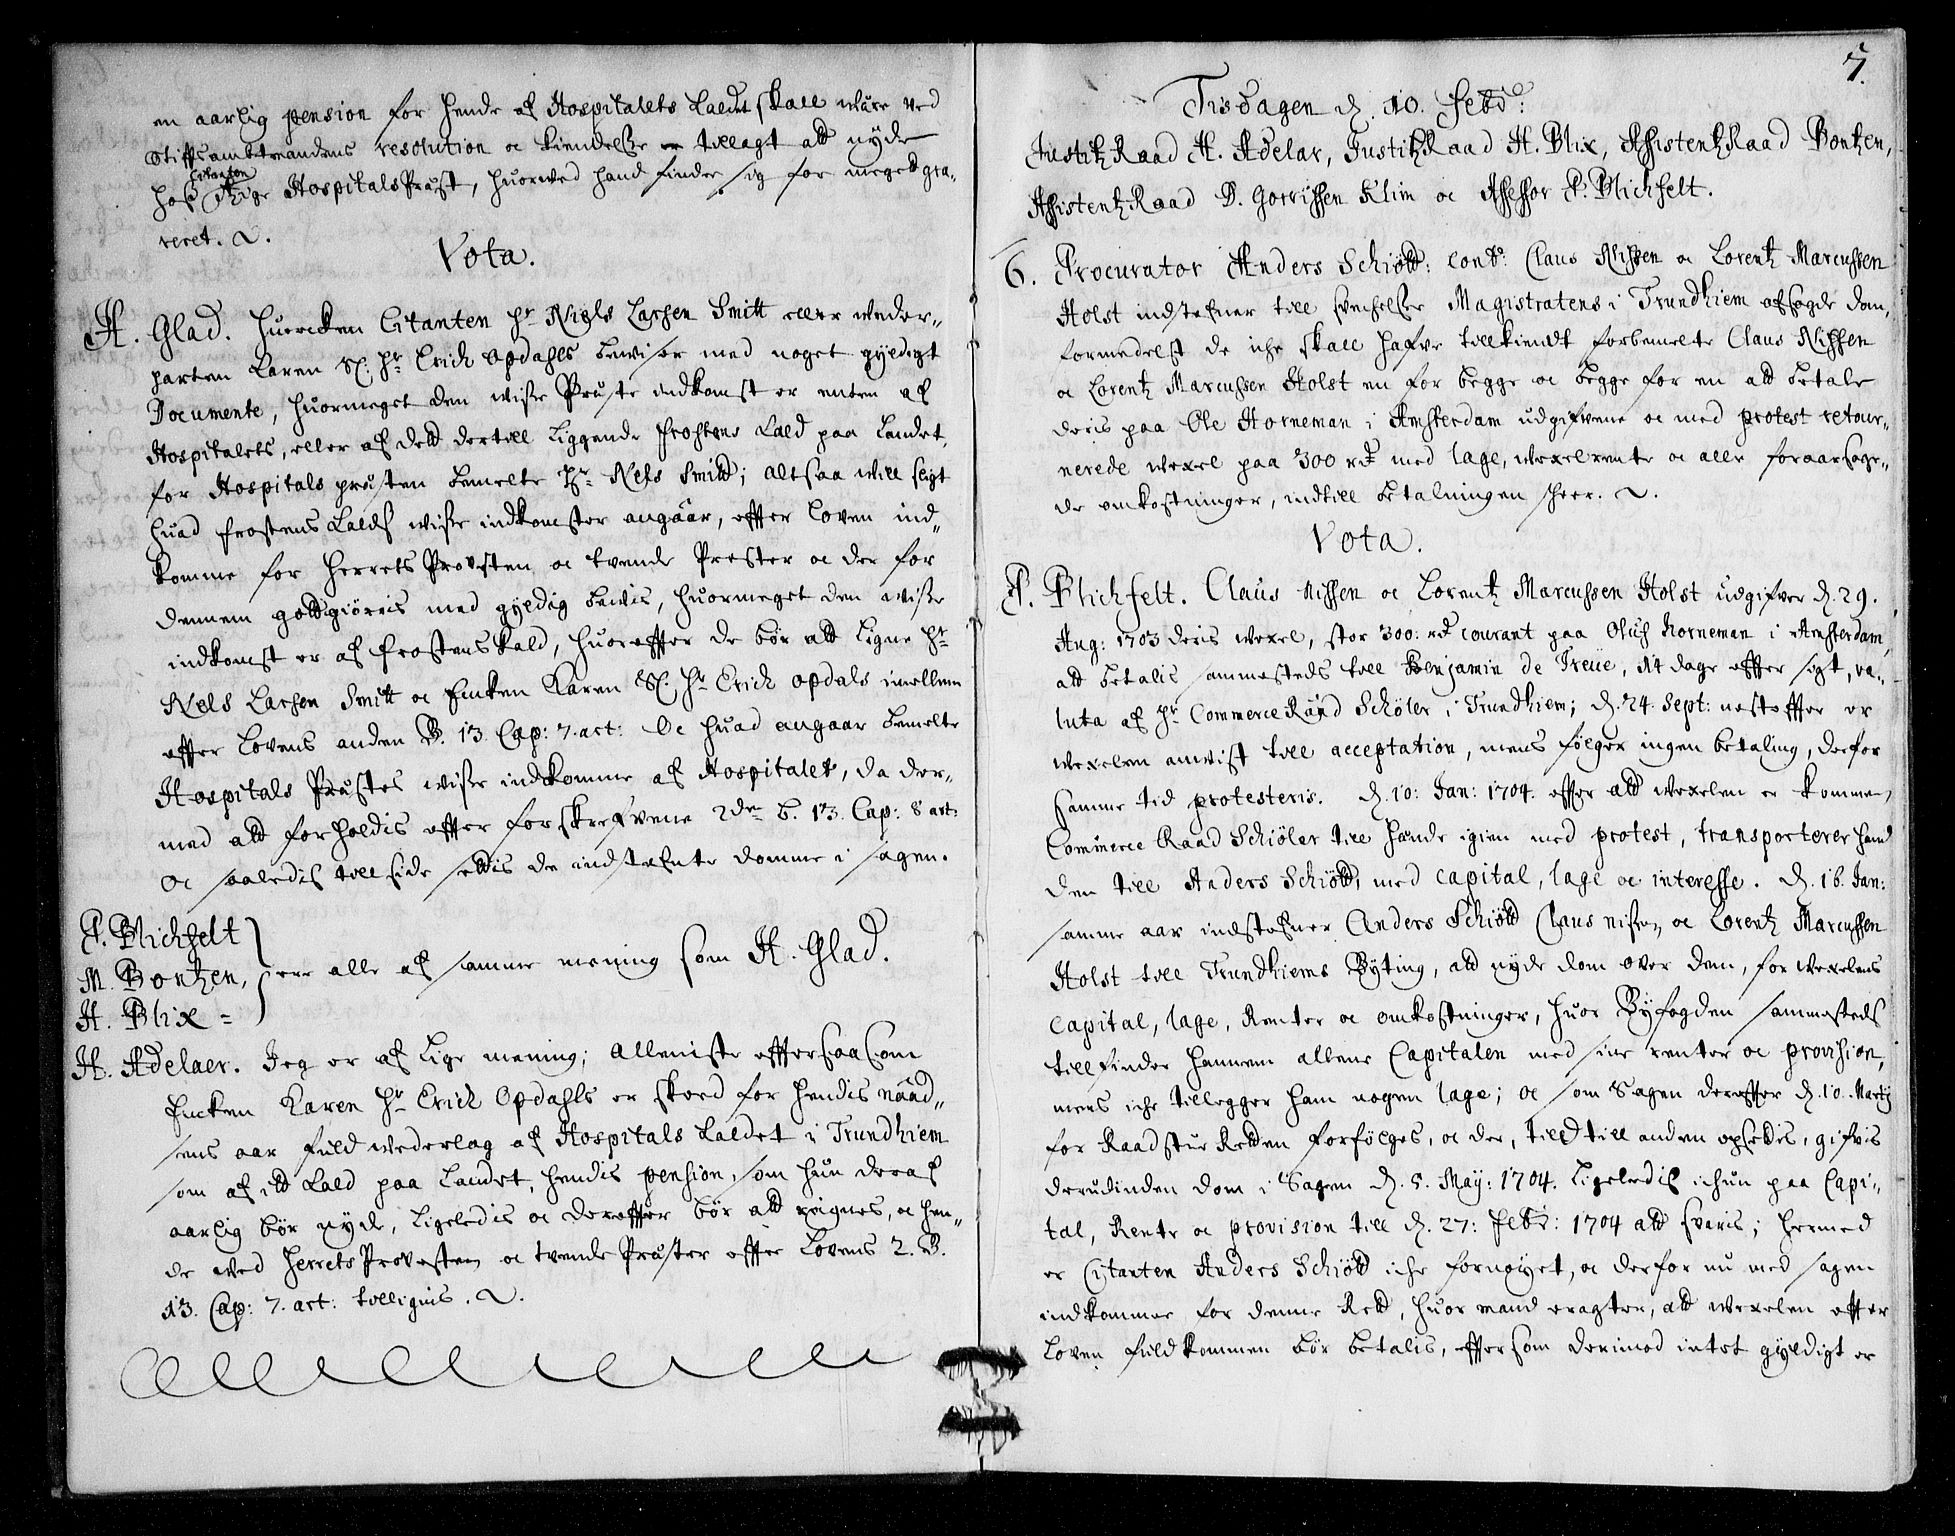 en aarlig pension for hende af Hospitalets Kaldt skall være ved
Stiftsambtmandens resolution oc kiendelse er tillagt att nyde
Citanten
hoß Rige Hospitals Præst, huorved hand finder sig for meget gra-
veret. &.
Vota.
H. Glad. Huercken Citanten Hr Niels Larsen Smitt eller veder-
parten Karen Sl: Hr Erich Opdahls beviser med noget gyldigt
Documente, huormeget den visse Præste indkomst er enten af
Hospitalets, eller af dett dertill liggende Frostens Kald paa Landet,
for Hospitals præsten bemelte Hr Nels Smitt; altsaa vill sligt
huad Frostens Kalds visse indkomster angaar, effter loven ind-
komme for Herrets Provsten oc tvende Prester oc der for
dennem gottgiøris med gyldig bevis, huormeget den visse
indkomst er af Frostens Kald, huoreffter de bør att ligne Hr
Nels Larsen Smitt oc Encken Karen Sl: Hr Erich Opdals imellem
effter Lovens anden B. 13. Cap: 7. art: Oc huad angaar bemelte
Hospitals Præstes visse indkomme af Hospitalet, da der-
med att forholdis effter forskrefvene 2den B. 13. Cap: 8 art:
Oc saaledis till side settis de indstefnte domme i sagen.
P. Blichfelt
M. Bontzen, ere alle af samme mening som H. Glad.
H. Blix =
H. Adelaer. Jeg er af lige mening; alleniste effter saasom
Encken Karen Hr Erich Opdahls er skeed for hendis naad-
sens aar fuld vederlag af Hospitals Kaldet i Trundhiem
som af itt Kald paa Landet, hendis pension, som hun deraf
aarlig bør nyde, ligeledis oc dereffter bør att reignes, oc hen-
de ved Herrets Provsten oc tvende Præster effter Lovens 2. B.
13. Cap: 7. art: tillignis. &.
7.
Tisdagen d. 10. Febr:
Justitz Raad H. Adelar, Justitz Raad H. Blix, Assistentz Raad Bontzen,
Assistentz Raad D. Gorrissen Klim oc Assessor P. Blichfelt.
6. Procurator Anders Schiøtt: cont: Claus Nissen oc Lorentz Marcussen
Holst indstefner till svechelse Magistratens i Trundhiem afsagde dom,
formedelst de iche skall hafve tillkiendt forbemelte Claus Nissen
oc Lorentz Marcussen Holst en for begge oc begge for en att betale
deris paa Ole Horneman i Amsterdam udgifvene oc med protest retour-
nerede vexel paa 300 rd med lage, vexel rente oc alle foraarsage-
de omkostninger, indtill betalningen scheer. &.
Vota.
P. Blichfelt. Claus Nissen oc Lorentz Marcussen Holst udgifver d. 29.
Aug: 1703 deris vexel, stor 300: rd courant paa Oluf Horneman i Amsterdam,
att betalis sammesteds till Benjamin de Treue, 14 dage effter sigt, va-
luta af Hr Commerce Raad Schøler i Trundhiem; d. 24. Sept: nesteffter er
vexelen anvist till acceptation, mens følger ingen betaling, derfor
samme tid protesteris. d. 10: Jan: 1704. effter att vexelen er kommen
Commerce Raad Schiøler till hande igien med protest, transporterer hand
den till Anders Schiøtt, med capital, lage oc interesse. d. 16. Jan:
samme aar indstefner Anders Schiøtt Claus Nissen oc Lorentz Marcussen
Holst till Trundhiems Byting, att nyde dom over dem, for vexelens
Capital, lage, Renter oc omkostninger, huor Byfogden sammesteds
tillfinder hannem allene Capitalen med sine renter oc provision,
mens iche tillegger ham nogen lage; oc som Sagen dereffter d. 10. Martz
for Raadstue Retten forfølges, oc der, tiid till anden opsettis, gifvis
derudinden dom i Sagen d. 5. May: 1704. ligeledis ichun paa Capi-
tal, Rente oc provision till d. 27: Febr: 1704 att svaris; hermed
er Citanten Anders Schiøtt iche fornøyet, oc derfor nu med sagen
indkommer for denne Rett, huor mand eragter, att vexelen effter
loven fuldkommen bør betalis, effter som derimod intet gyldigt er